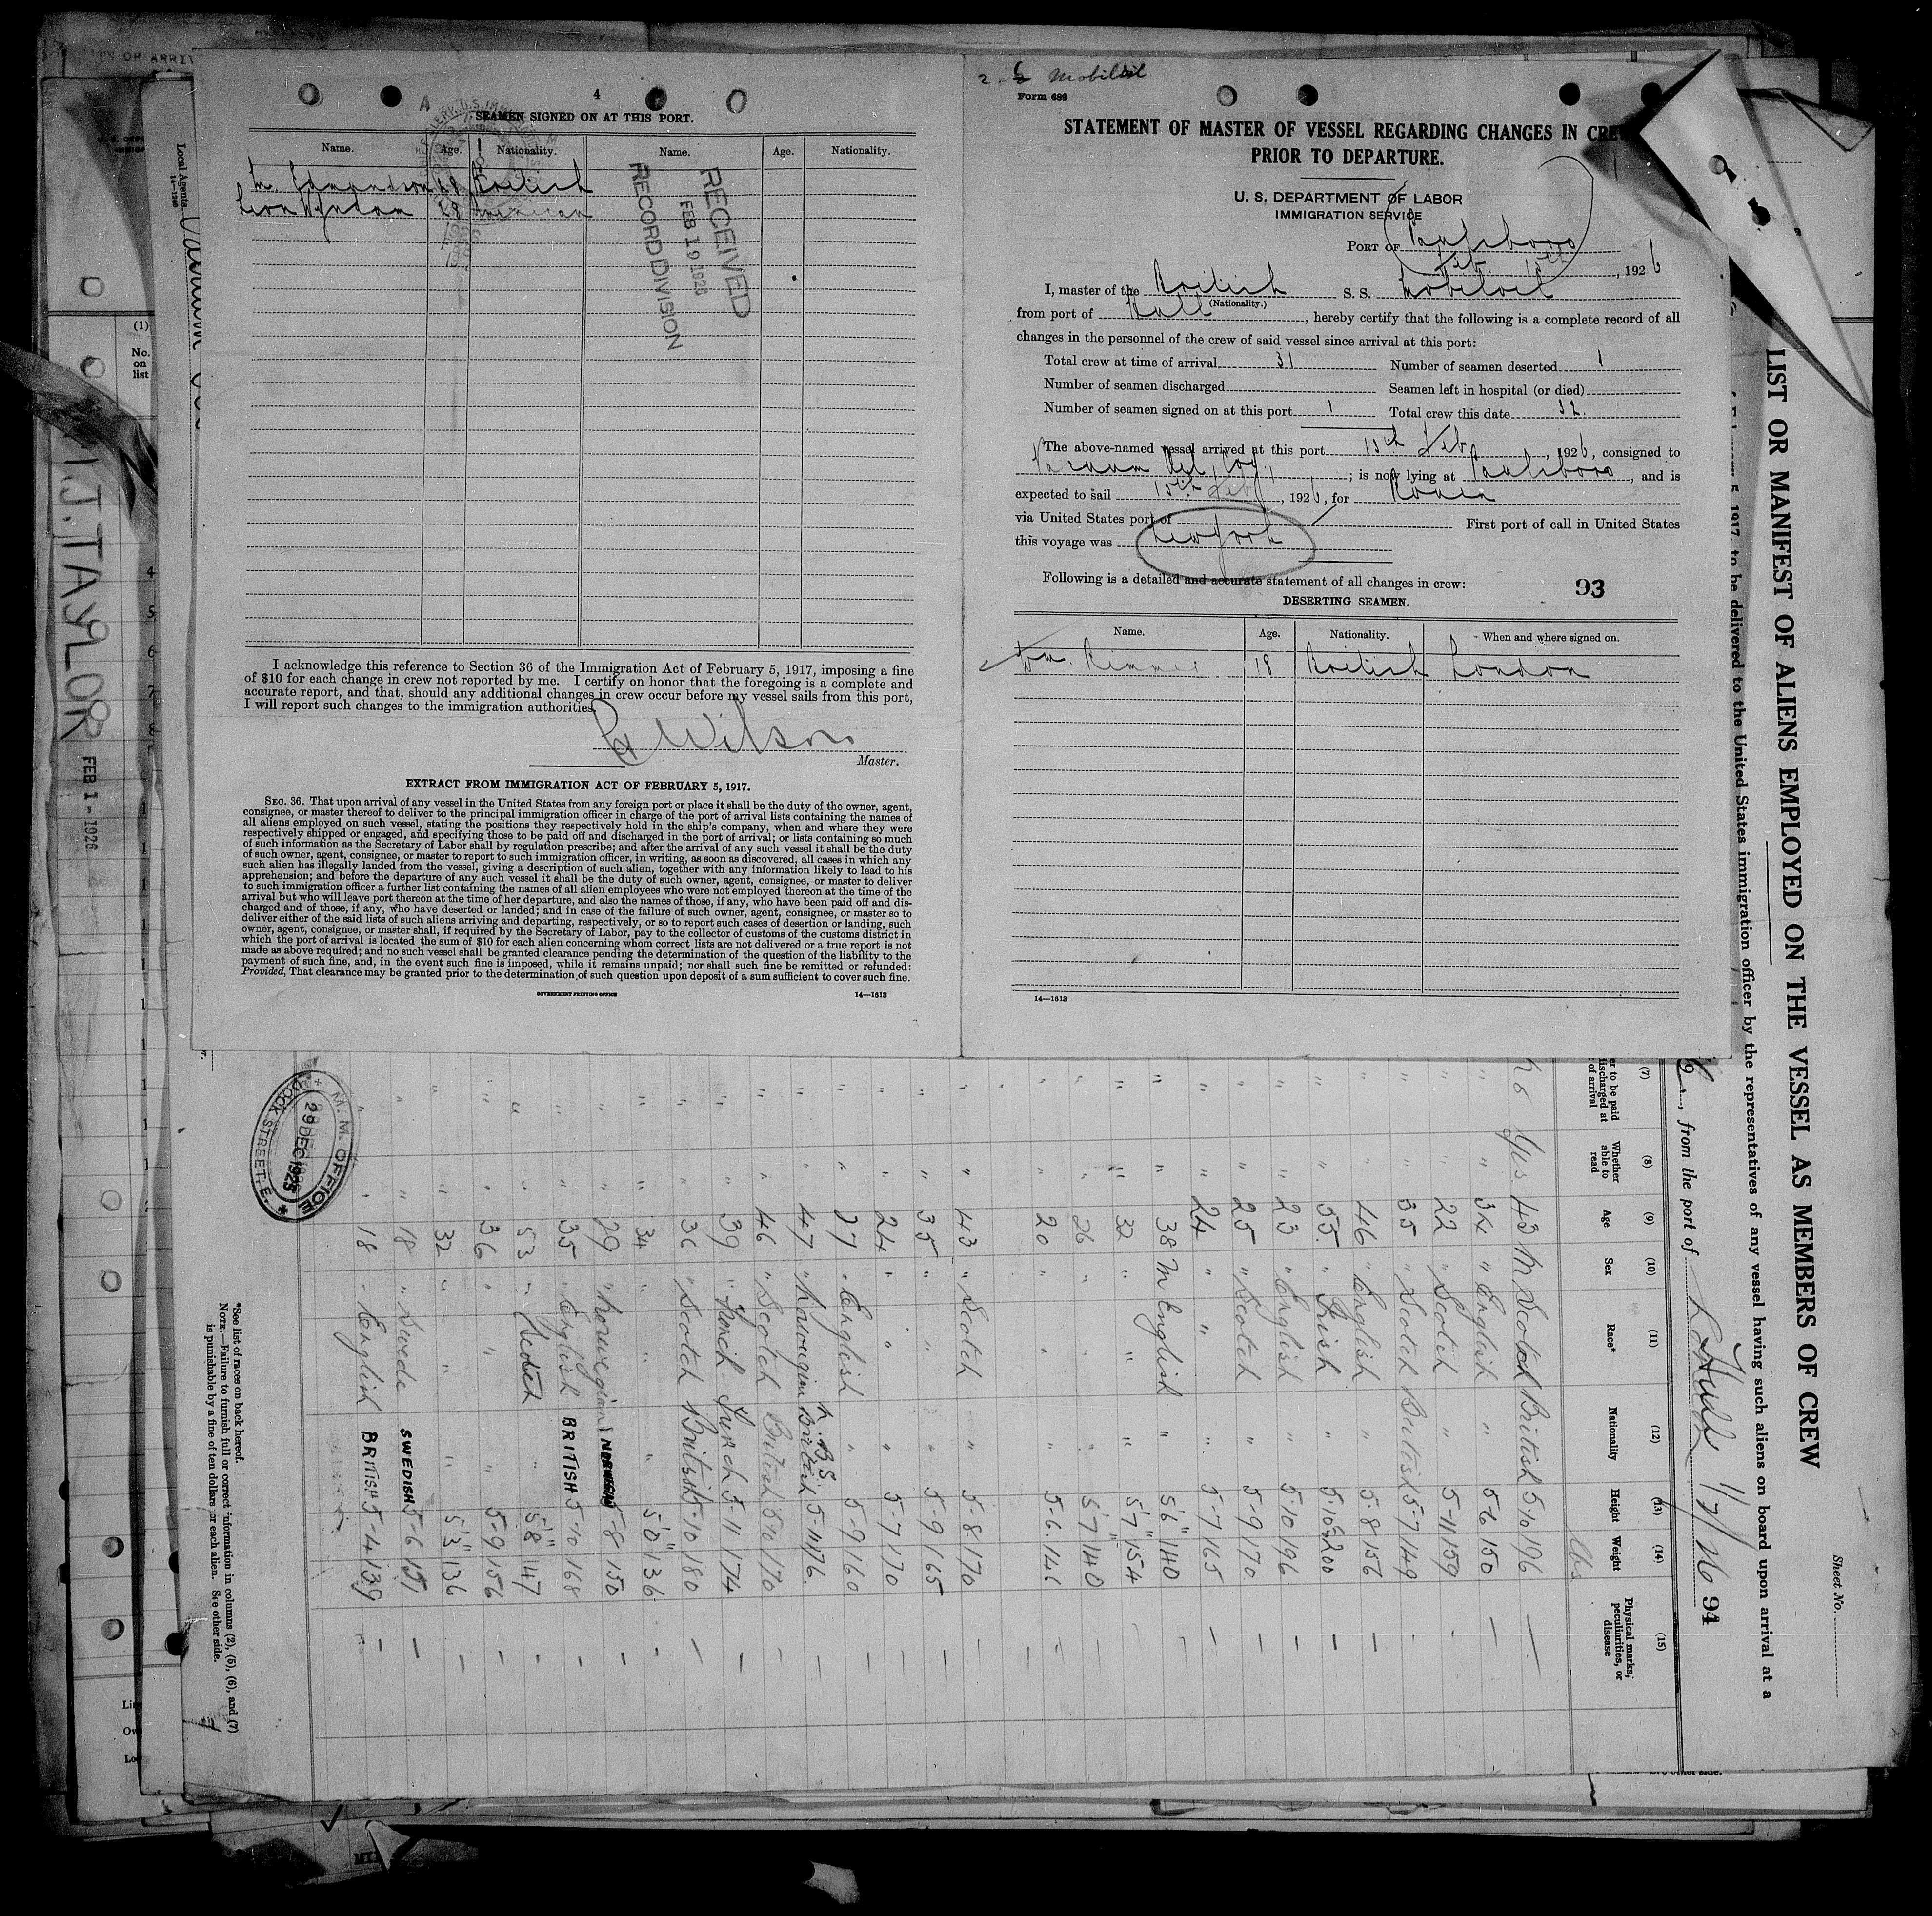 4
SEAMEN SIGNED ON AT THIS PORT.
Name. Age. Nationality. Name. Age. Nationality.
M. Edmondson 28 British
Leon 28 American
RECEIVED
FEB 19 1926
RECORD DIVISION
I acknowledge this reference to Section 36 of the Immigration Act of February 5, 1917, imposing a fine
of $10 for each change in crew not reported by me. I certify on honor that the foregoing is a complete and
accurate report, and that, should any additional changes in crew occur before my vessel sails from this port,
I will report such changes to the immigration authorities.
Wilson
Master.
EXTRACT FROM IMMIGRATION ACT OF FEBRUARY 5, 1917.
SEC. 36. That upon arrival of any vessel in the United States from any foreign port or place it shall be the duty of the owner, agent,
consignee, or master thereof to deliver to the principal immigration officer in charge of the port of arrival lists containing the names of
all aliens employed on such vessel, stating the positions they respectively hold in the ship's company, when and where they were
respectively shipped or engaged, and specifying those to be paid off and discharged in the port of arrival; or lists containing so much
of such information as the Secretary of Labor shall by regulation prescribe; and after the arrival of any such vessel it shall be the duty
of such owner, agent, consignee, or master to report to such immigration officer, in writing, as soon as discovered, all cases in which any
such alien has illegally landed from the vessel, giving a description of such alien, together with any information likely to lead to his
apprehension; and before the departure of any such vessel it shall be the duty of such owner, agent, consignee, or master to deliver
to such immigration officer a further list containing the names of all alien employees who were not employed thereon at the time of the
arrival but who will leave port thereon at the time of her departure, and also the names of those, if any, who have been paid off and dis-
charged and of those, if any, who have deserted or landed; and in case of the failure of such owner, agent, consignee, or master so to
deliver either of the said lists of such aliens arriving and departing, respectively, or so to report such cases of desertion or landing, such
owner, agent, consignee, or master shall, if required by the Secretary of Labor, pay to the collector of customs of the customs district in
which the port of arrival is located the sum of $10 for each alien concerning whom correct lists are not delivered or a true report is not
made as above required; and no such vessel shall be granted clearance pending the determination of the question of the liability to the
payment of such fine, and, in the event such fine is imposed, while it remains unpaid; nor shall such fine be remitted or refunded:
Provided, That clearance may be granted prior to the determination of such question upon deposit of a sum sufficient to cover such fine.
GOVERNMENT PRINTING OFFICE 14—1613
Mobiloil
Form 689
STATEMENT OF MASTER OF VESSEL REGARDING CHANGES IN CRE
PRIOR TO DEPARTURE.
U. S. DEPARTMENT OF LABOR
IMMIGRATION SERVICE
PORT OF Paulsboro
Feb 15th, 1926
I, master of the British S. S. Mobiloil
(Nationality.)
from port of Hull, hereby certify that the following is a complete record of all
changes in the personnel of the crew of said vessel since arrival at this port:
Total crew at time of arrival 31 Number of seamen deserted 1
Number of seamen discharged Seamen left in hospital (or died)
Number of seamen signed on at this port 1 Total crew this date 32.
The above-named vessel arrived at this port 13th Feb, 1926, consigned to
Vacuum Oil Coy; is now lying at Paulsboro, and is
expected to sail 15th Feb, 1926, for Rouen
via United States port of First port of call in United States
this voyage was New York
Following is a detailed and accurate statement of all changes in crew:
93
DESERTING SEAMEN.
Name. Age. Nationality. When and where signed on.
Wm. Rimmer 18 British London
14—1613
LIST OR MANIFEST OF ALIENS EMPLOYED ON THE VESSEL AS MEMBERS OF CREW
Sheet No.
5, 1917, to be delivered to the United States immigration officer by the representatives of any vessel having such aliens on board upon arrival at a
, from the port of Hull 1/7/26 94
(7) (8) (9) (10) (11) (12) (13) (14) (15)
er to be paid discharged at of arrival
Whether able to read
Age
Sex
Race*
Nationality
Height
Weight
Physical marks, peculiarities, or disease
lbs
no Yes 43 M Scotch British 5-10 196 —
" " 34 " English " 5-6 150 —
" " 22 " Scotch " 5-11 159
" " 35 " Scotch British 5-7 149
" " 46 " English " 5-8 156 —
" " 55 " Irish " 5-10½ 200 —
" " 23 " English " 5-10 196 —
" " 25 " Scotch " 5-9 170 —
" " 24 " " " 5-7 165 —
" " 38 M English " 5'6" 140 —
" " 32 " " " 5'7" 154
" " 26 " " " 5'7" 140 —
" " 20 " " " 5-6 146
" " 43 " Scotch " 5-8 170 —
" " 35 " " " 5-9 165 —
" " 24 " " " 5-7 170 —
" " 27 " English " 5-9 160 —
" " 47 " Norwegian British 5-11 176 —
" " 46 " Scotch British 5-10 170 —
" " 39 " French French 5-11 174 —
" " 36 " Scotch British 5-10 180 —
" " 34 " " " 5'0" 136
" " 29 " Norwegian NORWEGIAN 5-8 150 —
" " 35 " English BRITISH 5-10 168 —
" " 53 " Scotch " 5'8" 147
" " 36 " " " 5-9 156 —
" " 32 " " " 5'3" 136 —
" " 18 " Swede SWEDISH 5-6 151 —
" " 18 " English BRITISH 5-4 139 —
M. M. OFFICE
29 DEC 1925
DOCK STREET, E.
*See list of races on back hereof.
NOTE.—Failure to furnish full or correct information in columns (2), (5), (6), and (7)
is punishable by a fine of ten dollars for each alien. See other side.
Local Agents
14—1240
H.J. TAYLOR
FEB 1 - 1926
(1)
No. on list
OF ARRIV